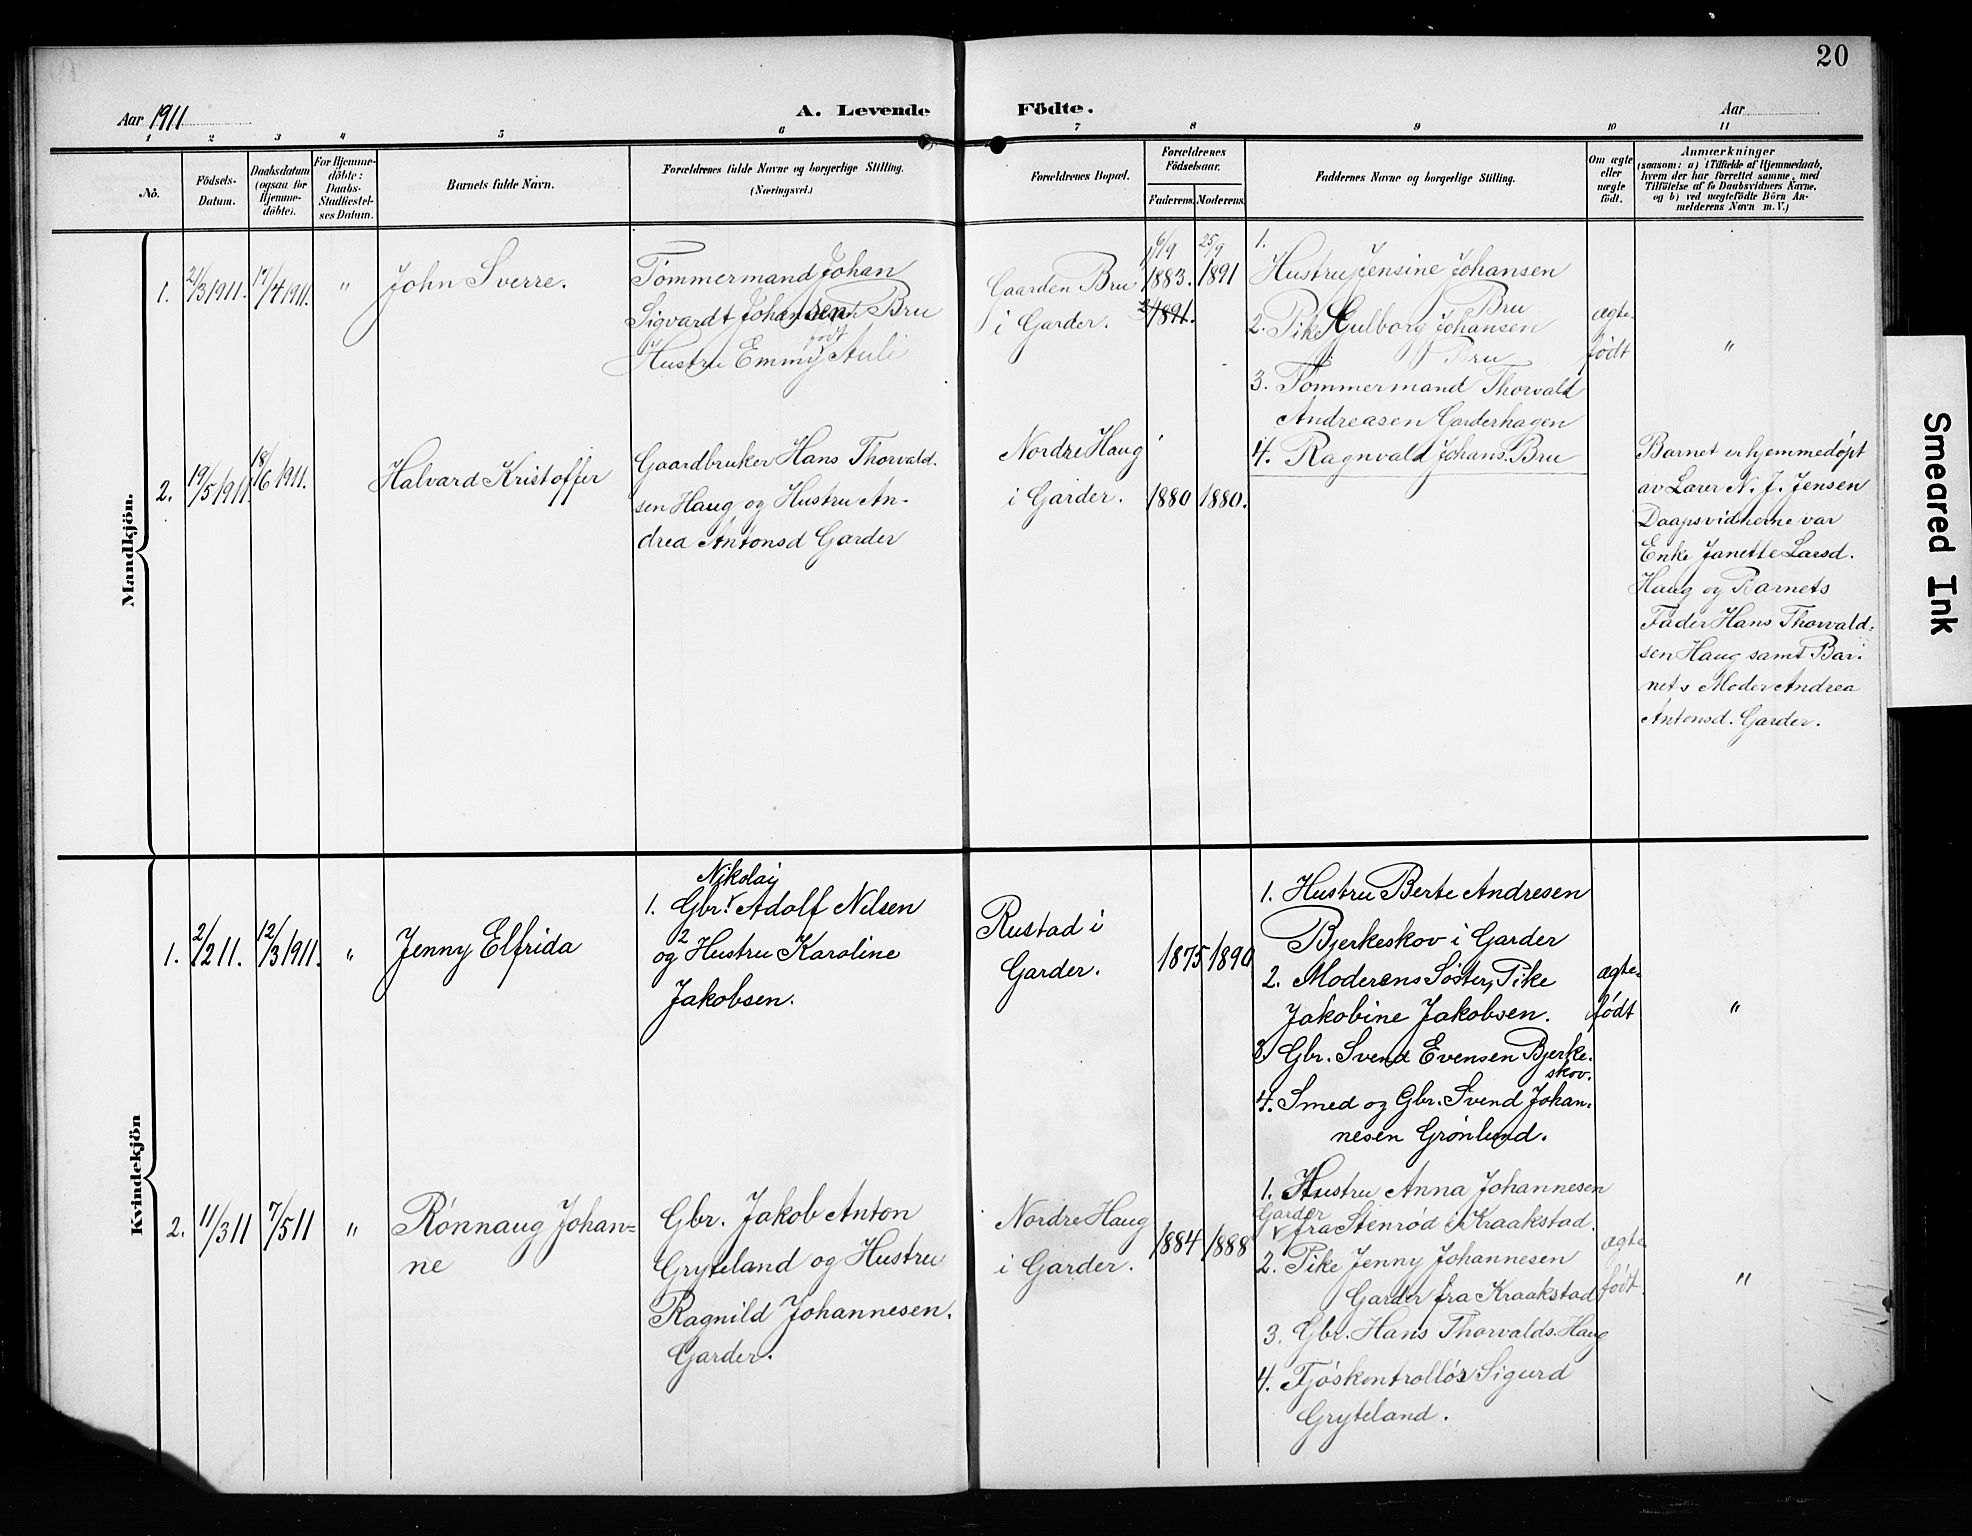 20
Aar 1911
A. Levende Födte.
Aar
1 2 3 4 5 6 7 8 9 10 11
No.
Födsels-
Datum.
Daabsdatum
(ogsaa for
Hjemme-
döbte).
For Hjemme-
döbte:
Daabs-
Stadfæstel-
ses Datum.
Barnets fulde Navn.
Forældrenes fulde Navne og borgerlige Stilling.
(Næringsvei.)
Forældrenes Bopæl.
Forældrenes
Födselsaar.
Faderens.
Moderens.
Faddernes Navne og borgerlige Stilling.
Om ægte
eller
uægte
födt.
Anmærkninger
(saasom: a) i Tilfælde af Hjemmedaab,
hvem der har forrettet samme, med
Tilföielse af to Daabsvidners Navne,
og b) ved uægtefödte Börn An-
melderens Navn m. V.)
Mandkjön.
1.
21/3 1911.
17/4 1911.
"
John Sverre.
Tømmermand Johan
Sigvardt Johansen Bru
Hustru Emmy født Auli
Gaarden Bru
i Garder.
6/9
1883.
1891.
25/9
1891
1.
Hustru Jensine Johansen
Bru
2. Pike Gulborg Johansen
Bru
3. Tømmermand Thorvald
Andreasen Garderhagen
4. Ragnvald Johans. Bru
ægte
født
"
2.
19/5 1911.
18/6 1911.
Halvard Kristoffer
Gaardbruker Hans Thorvald-
sen Haug og Hustru An-
drea Antonsd Garder
Nordre Haug
i Garder.
1880
1880.
Barnet er hjemmedøpt
av Lærer N. J. Jensen
Daapsvidnerne var
Enke Janette Larsd.
Haug og Barnets
Fader Hans Thorvald-
sen Haug samt Bar-
nets Moder Andrea
Antonsd. Garder.
Kvindekjön
1.
2/2 11.
12/3 1911.
"
Jenny Elfrida
Nikolaij
1. Gbr. Adolf Nilsen
2
og Hustru Karoline
Jakobsen.
Rustad i
Garder.
1875
1890
1. Hustru Berte Andresen
Bjerkeskov i Garder
2. Moderens Søster, Pike
Jakobine Jakobsen.
3. Gbr. Svend Evensen Bjerke-
skov.
4. Smed og Gbr. Svend Johan-
nesen Grønlund.
ægte
født
"
2.
11/3 11
7/5 11
"
Rønnaug Johan-
ne
Gbr. Jakob Anton
Gryteland og Hustru
Ragnild Johannesen.
Garder.
Nordre Haug
i Garder.
1884
1888
1. Hustru Anna Johannesen
Garder
fra Stenrød i Kraakstad.
2. Pike Jenny Johannesen
Garder fra Kraakstad
3. Gbr. Hans Thorvalds. Haug
4. Fjøskontrolør Sigurd
Gryteland.
ægte
født.
"
Smeared Ink